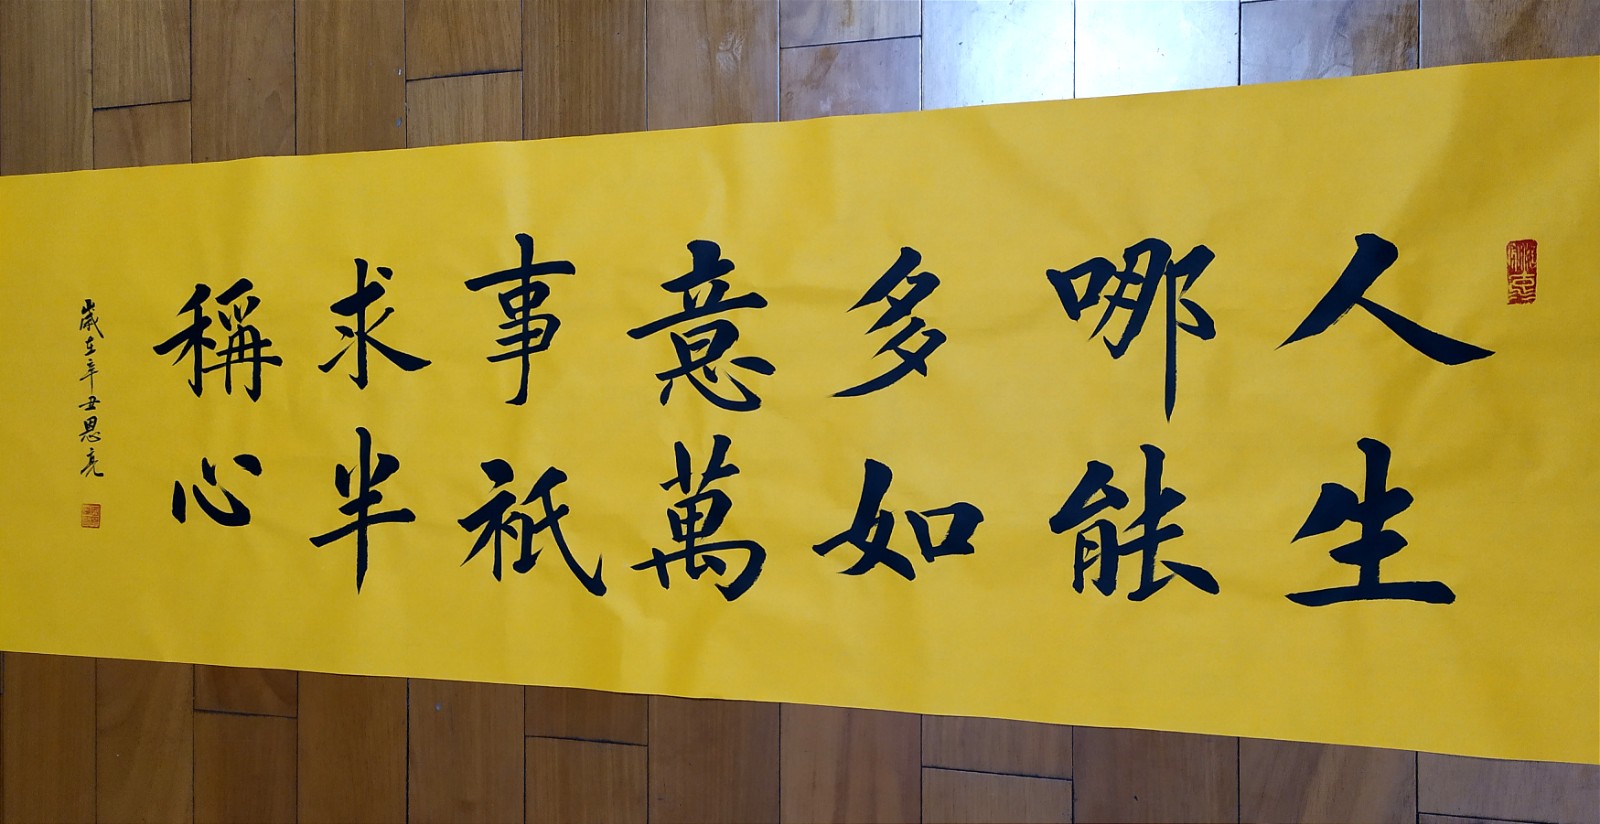 人生
哪能
多如
意萬
事祇
求半
稱心
歲在辛丑思亮